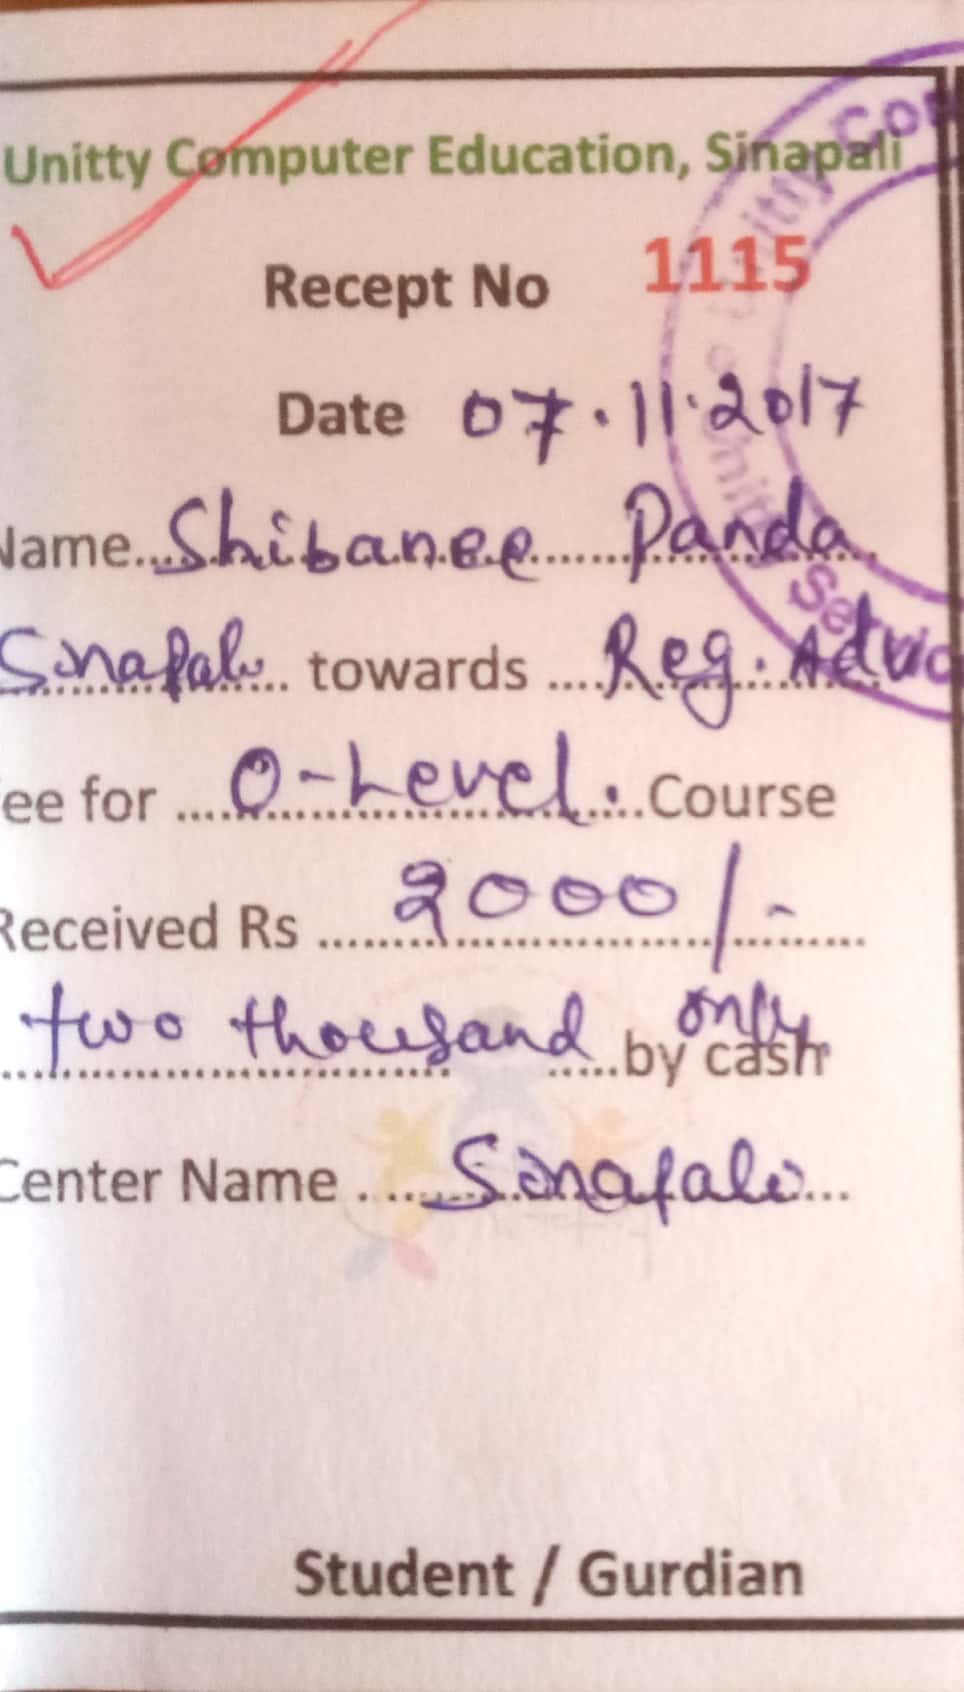 Unitty Computer Education, Sinapali
Recept No 1115
Date 07.11.2017
Name...Shibanee Panda
Sinapali... towards ....Reg. Adv
ee for ....O-Level....Course
Received Rs ....2000/-....
two thousand only .....by cash
Center Name .....Sinapali...
Student / Gurdian